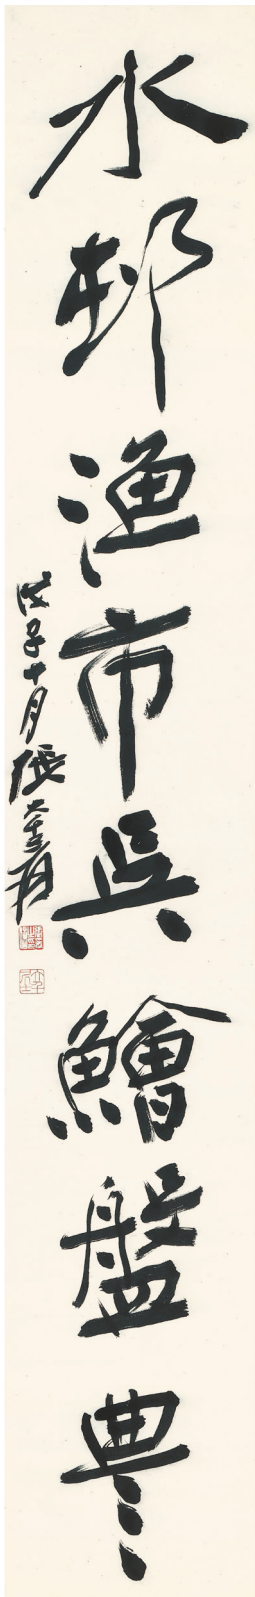 水邨漁市吳鱠盤豐
戊子十月張大千爰